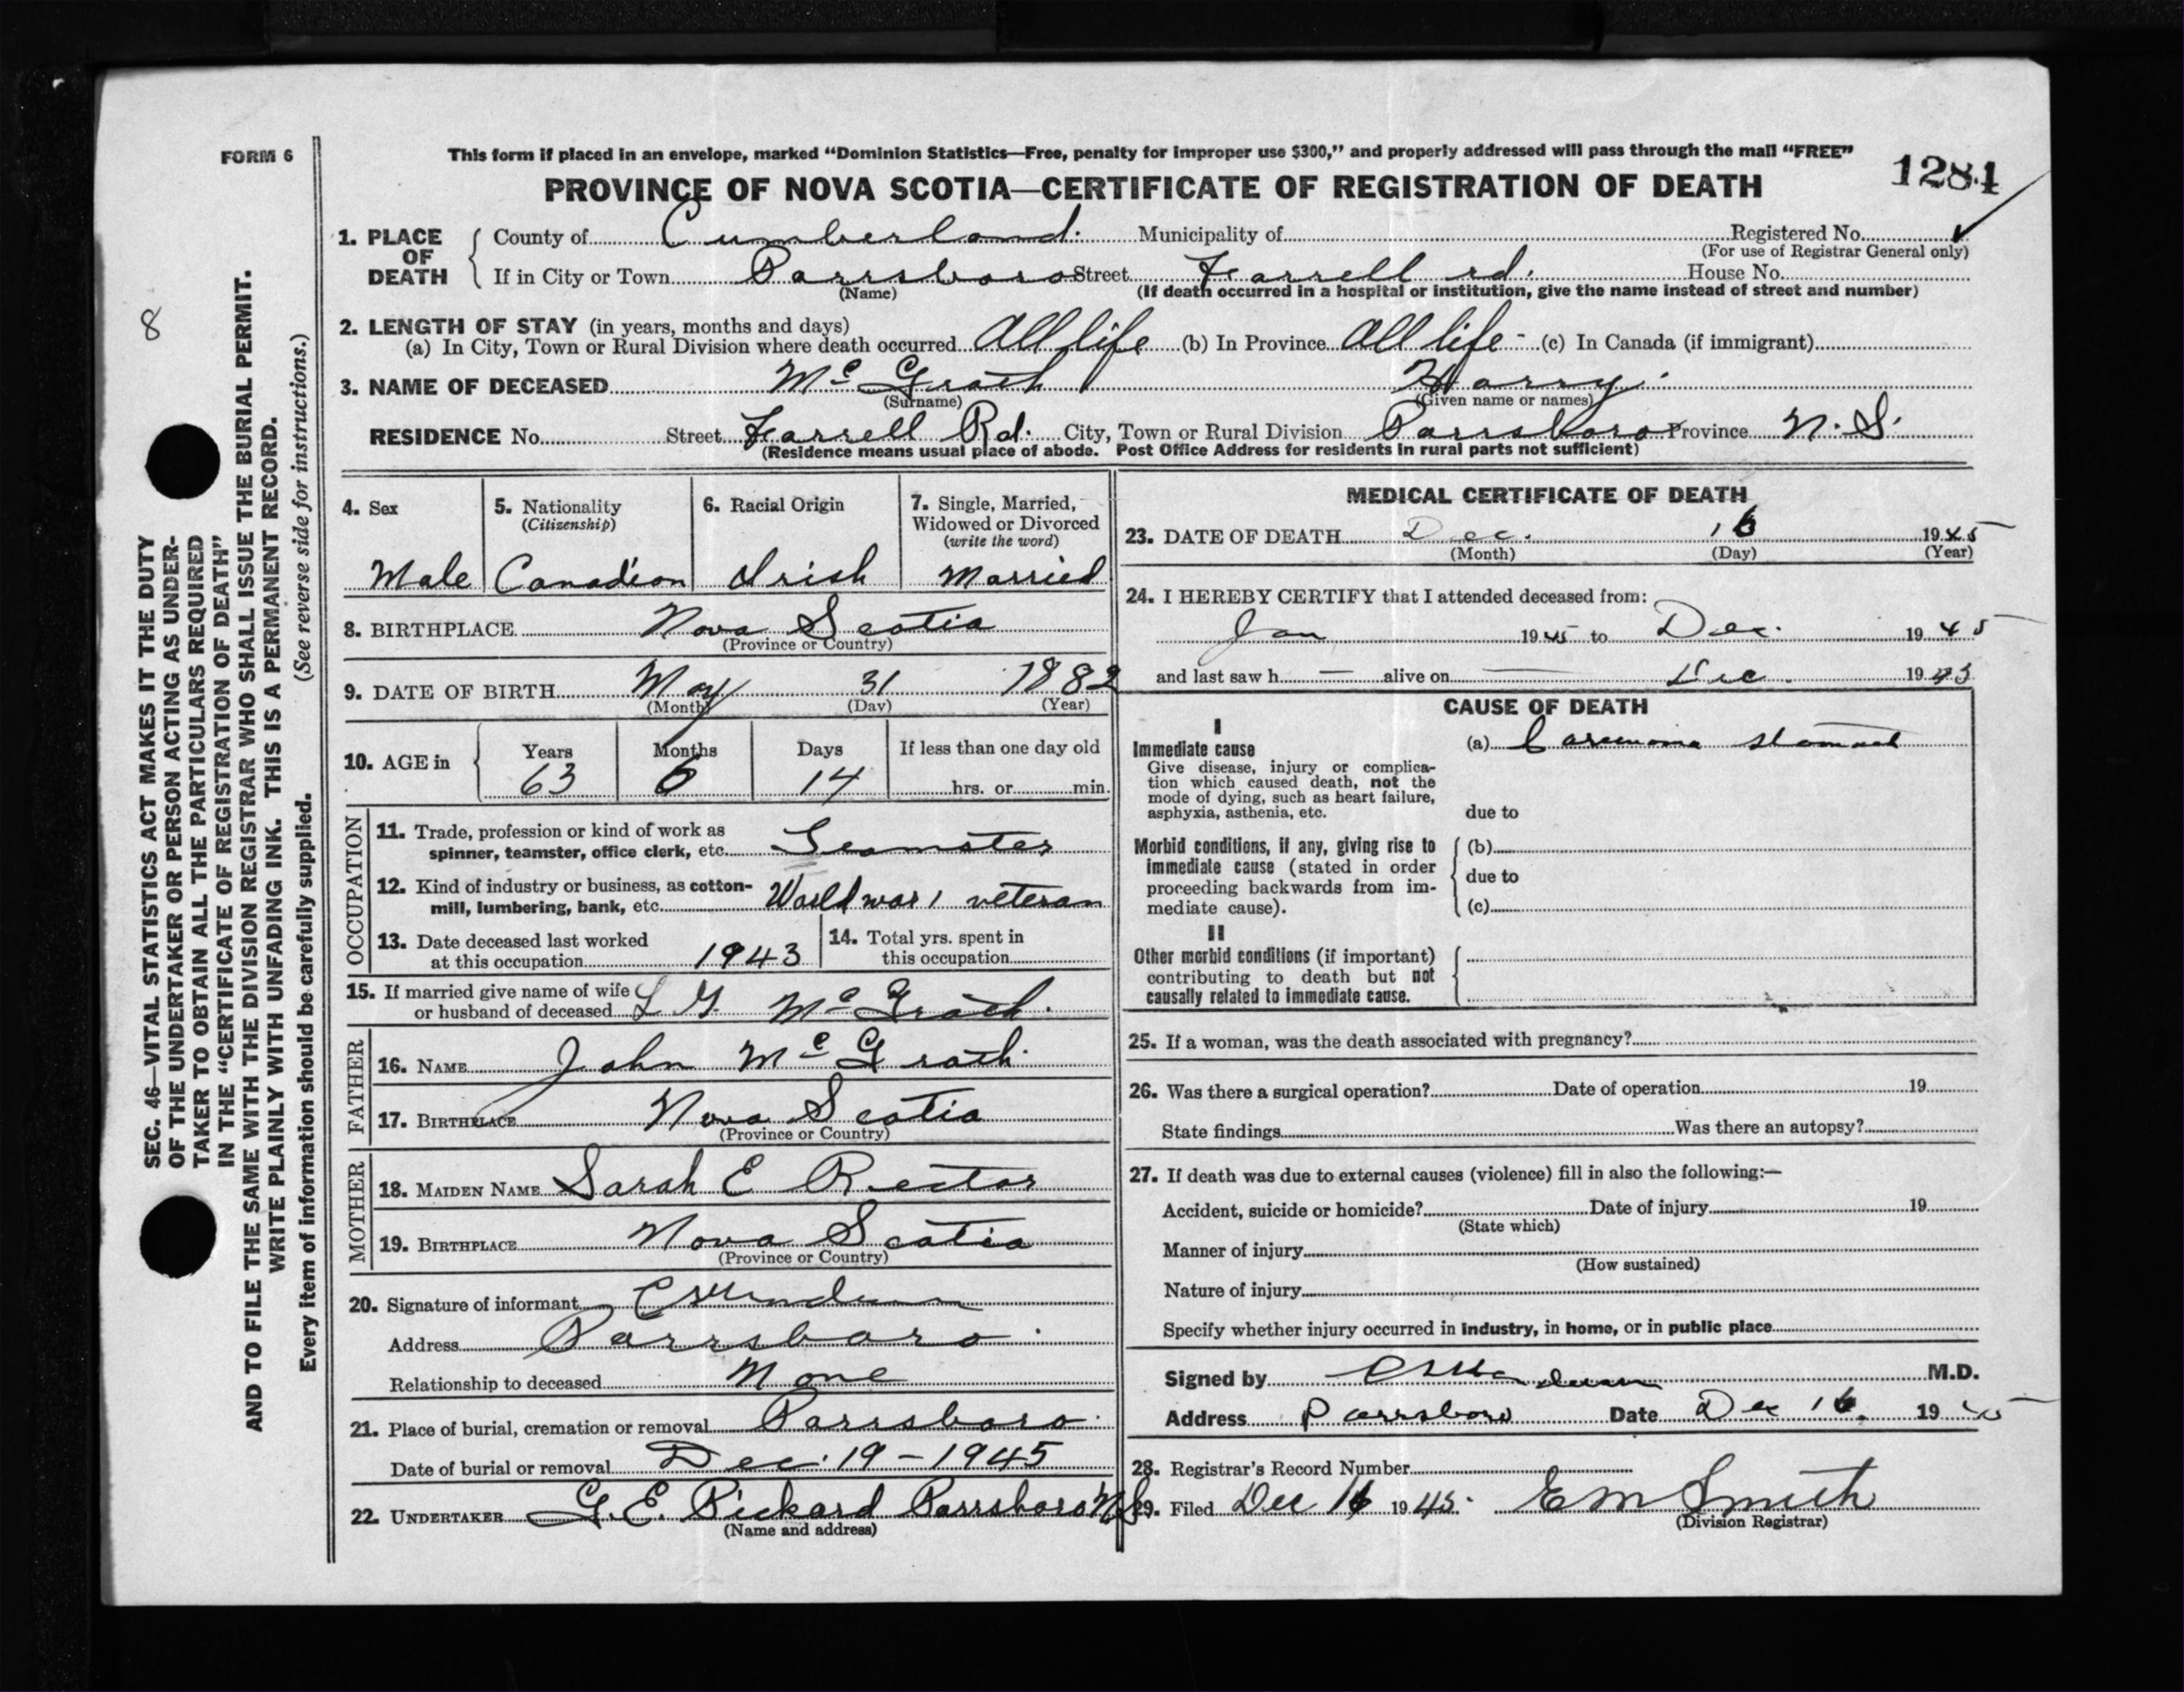 FORM 6
This form if placed in an envelope, marked “Dominion Statistics—Free, penalty for improper use $300,” and properly addressed will pass through the mail “FREE”
1284
PROVINCE OF NOVA SCOTIA—CERTIFICATE OF REGISTRATION OF DEATH
1. PLACE OF DEATH
County of Cumberland. Municipality of Registered No.
(For use of Registrar General only)
If in City or Town Parrsboro Street Farrell rd. House No.
(Name) (If death occurred in a hospital or institution, give the name instead of street and number)
2. LENGTH OF STAY (in years, months and days)
(a) In City, Town or Rural Division where death occurred All life (b) In Province All life - (c) In Canada (if immigrant)
3. NAME OF DECEASED McGrath Harry.
(Surname) (Given name or names)
RESIDENCE No. Street Farrell Rd. City, Town or Rural Division Parrsboro Province N.S.
(Residence means usual place of abode. Post Office Address for residents in rural parts not sufficient)
4. Sex
Male
5. Nationality
(Citizenship)
Canadian
6. Racial Origin
Irish
7. Single, Married,
Widowed or Divorced
(write the word)
Married
8. BIRTHPLACE Nova Scotia
(Province or Country)
9. DATE OF BIRTH May 31 1882
(Month) (Day) (Year)
10. AGE in
Years Months Days If less than one day old
63 6 14 hrs. or min.
OCCUPATION
11. Trade, profession or kind of work as
spinner, teamster, office clerk, etc. Teamster
12. Kind of industry or business, as cotton-
mill, lumbering, bank, etc. World war 1 veteran
13. Date deceased last worked
at this occupation 1943
14. Total yrs. spent in
this occupation
15. If married give name of wife
or husband of deceased McGrath.
FATHER
16. NAME John McGrath.
17. BIRTHPLACE Nova Scotia
(Province or Country)
MOTHER
18. MAIDEN NAME Sarah E Rector
19. BIRTHPLACE Nova Scotia
(Province or Country)
20. Signature of informant
Address Parrsboro.
Relationship to deceased None
21. Place of burial, cremation or removal Parrsboro.
Date of burial or removal Dec. 19 - 1945
22. UNDERTAKER G.E. Rickard Parrsboro N.S.
(Name and address)
MEDICAL CERTIFICATE OF DEATH
23. DATE OF DEATH Dec. 16 1945
(Month) (Day) (Year)
24. I HEREBY CERTIFY that I attended deceased from:
Jan 1945 to Dec. 1945
and last saw h — alive on — Dec. 19
CAUSE OF DEATH
I
Immediate cause
Give disease, injury or complica-
tion which caused death, not the
mode of dying, such as heart failure,
asphyxia, asthenia, etc.
(a) Carcinoma stomach
due to
Morbid conditions, if any, giving rise to
immediate cause (stated in order
proceeding backwards from im-
mediate cause).
(b)
due to
(c)
II
Other morbid conditions (if important)
contributing to death but not
causally related to immediate cause.
25. If a woman, was the death associated with pregnancy?
26. Was there a surgical operation? Date of operation 19
State findings Was there an autopsy?
27. If death was due to external causes (violence) fill in also the following:—
Accident, suicide or homicide? Date of injury 19
(State which)
Manner of injury
(How sustained)
Nature of injury
Specify whether injury occurred in industry, in home, or in public place
Signed by M.D.
Address Parrsboro Date Dec 16. 1945
28. Registrar's Record Number
29. Filed Dec 16 1945. E M Smith
(Division Registrar)
8
SEC. 46—VITAL STATISTICS ACT MAKES IT THE DUTY
OF THE UNDERTAKER OR PERSON ACTING AS UNDER-
TAKER TO OBTAIN ALL THE PARTICULARS REQUIRED
IN THE “CERTIFICATE OF REGISTRATION OF DEATH”
AND TO FILE THE SAME WITH THE DIVISION REGISTRAR WHO SHALL ISSUE THE BURIAL PERMIT.
WRITE PLAINLY WITH UNFADING INK. THIS IS A PERMANENT RECORD.
Every item of information should be carefully supplied. (See reverse side for instructions.)